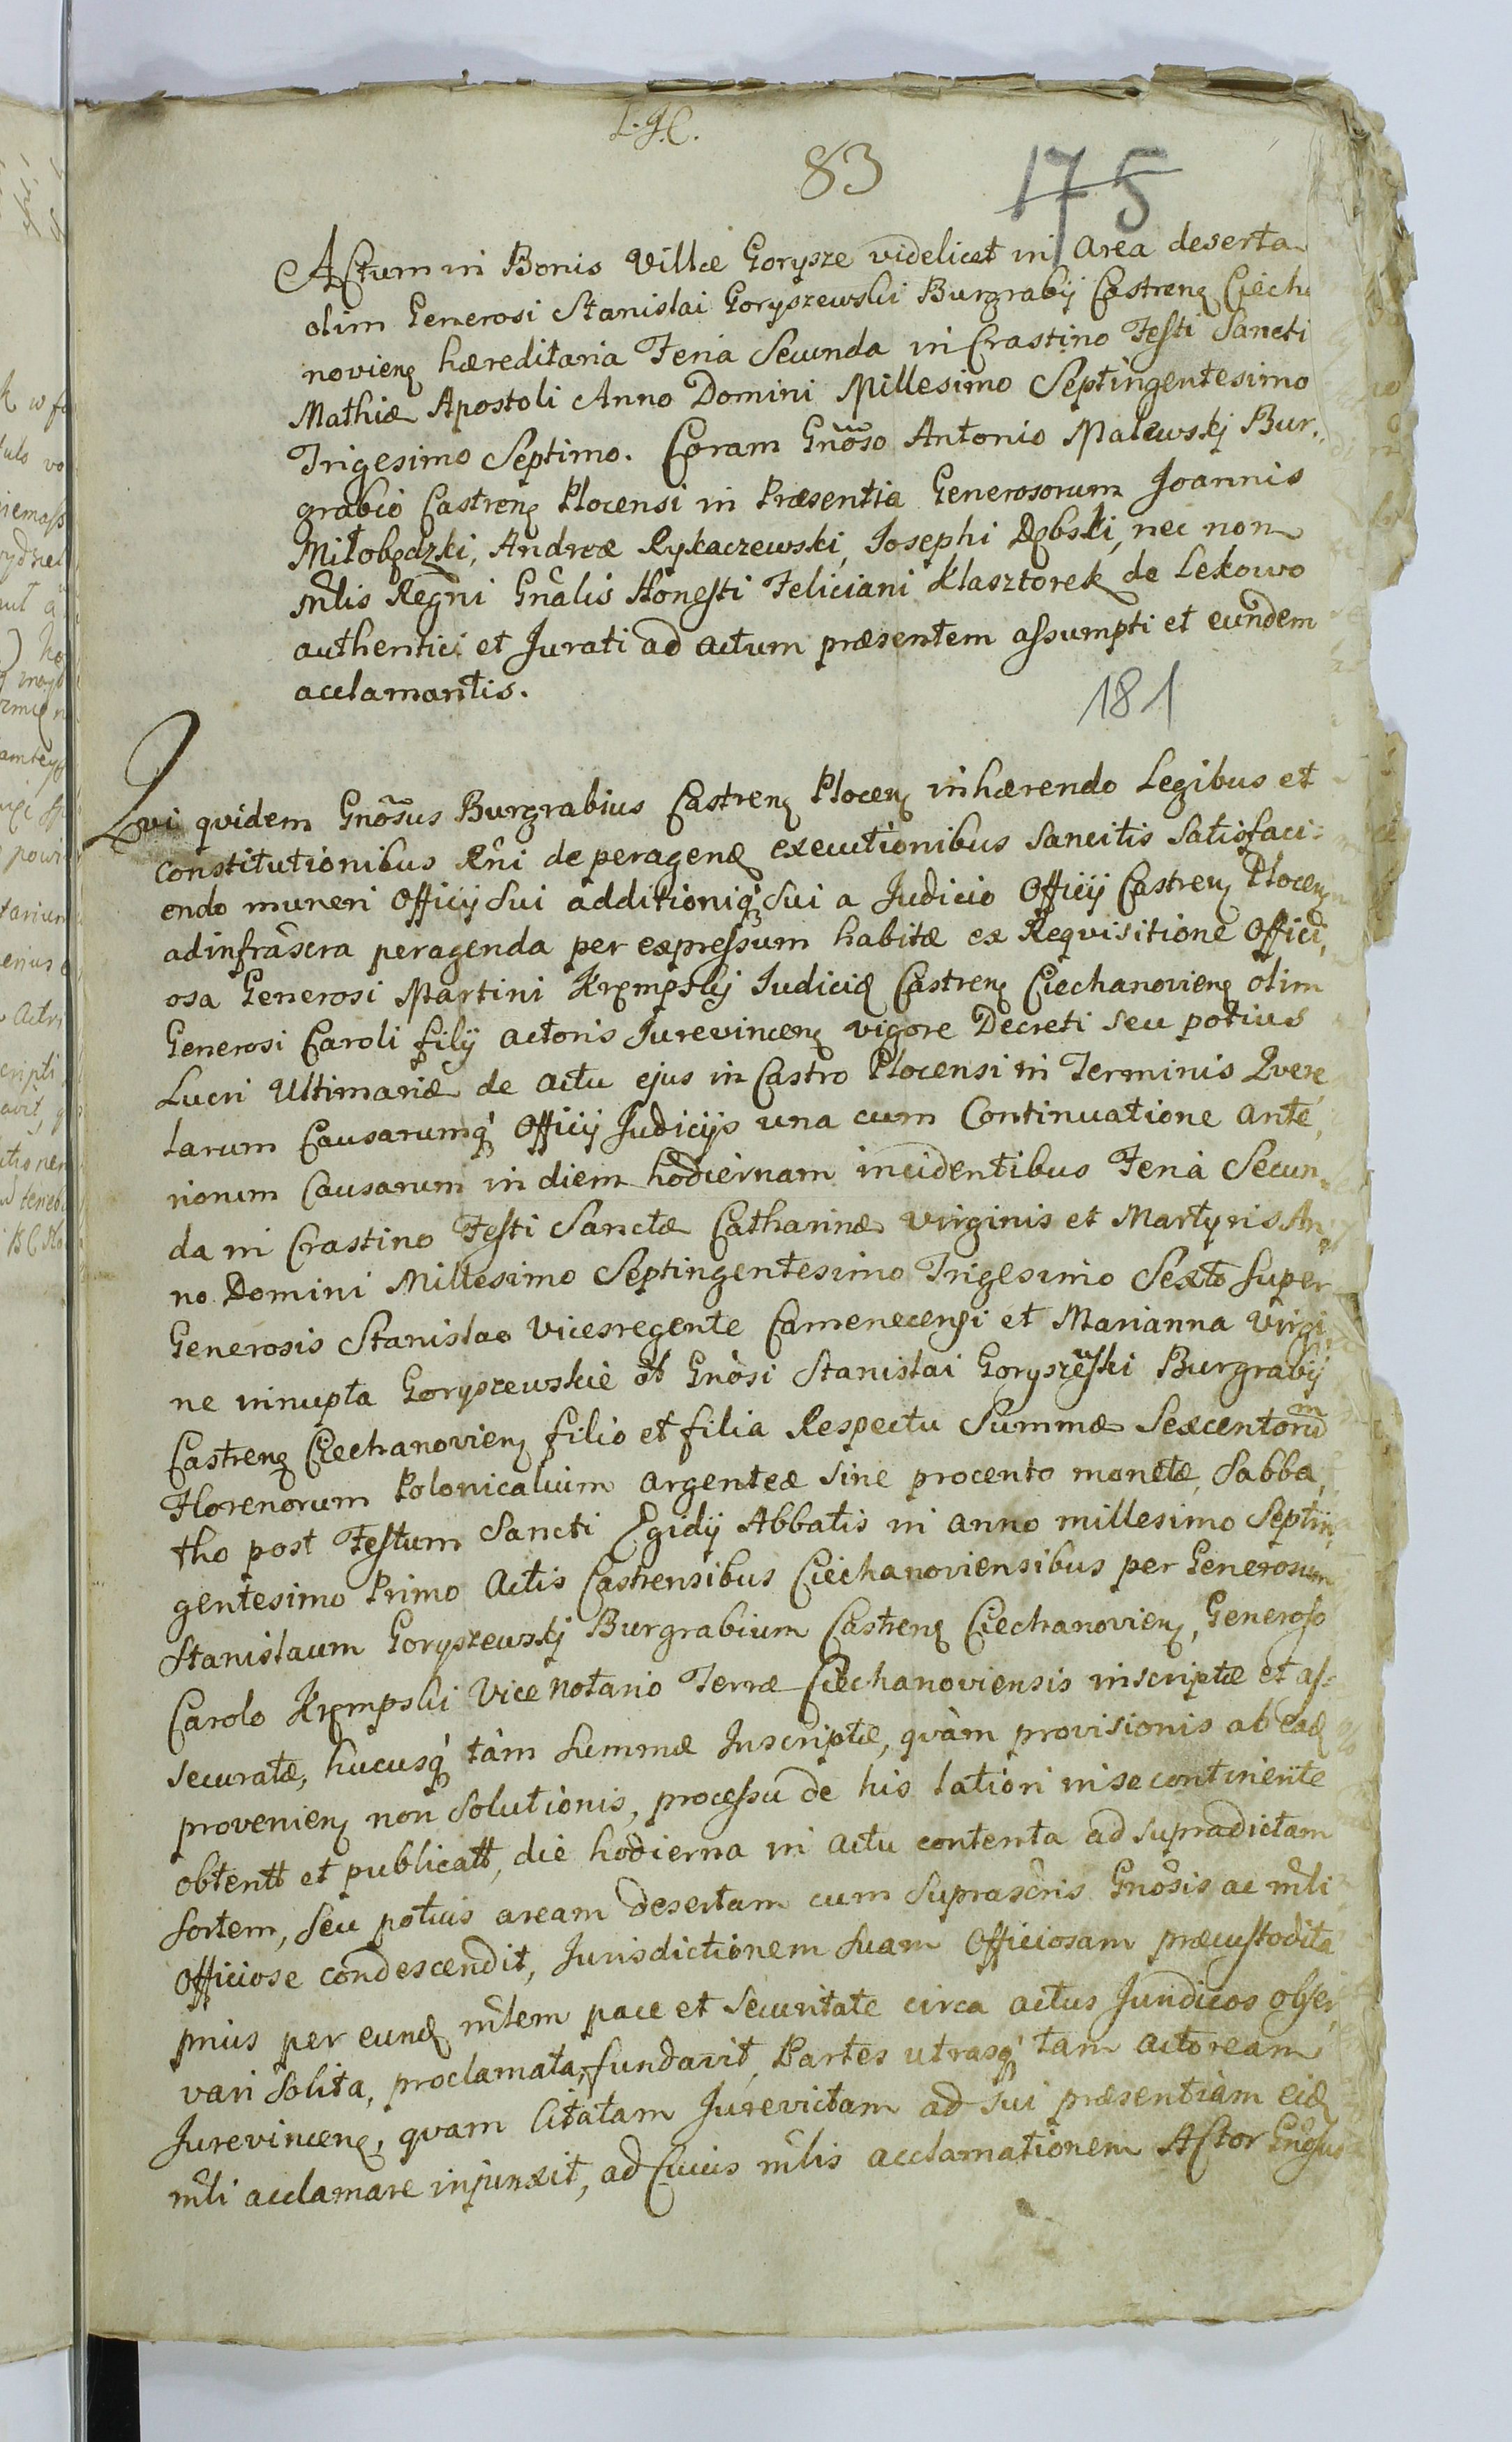 L.J.C.
83
175
Actum in Bonis Villæ Gorysze videlicet in area deserta
olim Generosi Stanislai Goryszewski Burgrabij Castren Ciecha
novien hæreditaria Feria Secunda in Crastino Festi Sancti
Mathiæ Apostoli Anno Domini Millesimo Septingentesimo
Trigesimo Septimo. Coram Gnoso Antonio Malewskj Bur,,
grabio Castren Plocensi in Præsentia Generosorum Joannis
Miłobędzki, Andreæ Rykaczewski, Josephi Dębski, nec non
Mlis Regni Gnalis Honesti Feliciani Klasztorek de Lekowo
authentici et Jurati ad actum præsentem assumpti et eundem
acclamantis.
181
Qvi qvidem Gnosus Burgrabius Castren Plocen inhærendo Legibus et
constitutionibus Rni de peragen executionibus sancitis satisfaci=
endo muneri Officij sui additioniq sui a Judicio Officij Castren Plocen
ad infrascra peragenda per expressum habitæ ex Reqvisitione Offici,
osa Generosi Martini Krempskj Judicid Castren Ciechanovien olim
Generosi Caroli filij actoris Jurevincen vigore Decreti seu potius
Lucri Ultimariæ de actu ejus in Castro Plocensi in Terminis Qvere
larum Causarumq Officij Judicijs una cum Continuatione ante,
riorum Causarum in diem hodiernam incidentibus Feria Secun,,
da in Crastino Festi Sanctæ Catharinæ Virginis et Martyris An,
no Domini Millesimo Septingentesimo Trigesimo Sexto super
Generosis Stanislao Vicesregente Camenecensi et Marianna Virgi,
ne innupta Goryszewskie ol Gnosi Stanislai Goryszewski Burgrabij
Castren Ciechanovien filio et filia Respectu Summæ Sexcentorum
Florenorum Polonicalium argenteæ sine procento monetæ, Sabba,
tho post Festum Sancti Egidij Abbatis in anno millesimo Septin,
gentesimo Primo Actis Castrensibus Ciechanoviensibus per Generosum
Stanislaum Goryszewskj Burgrabium Castren Ciechanovien, Generoso
Carolo Krempski Vice Notario Terræ Ciechanoviensis inscriptæ et as=
securatæ, hucusq tàm summæ Inscriptæ, qvàm provisionis ab ead
provenien non solutionis, processu de his latiori in se continente
obtentt et publicatt, die hodierna in actu contenta ad supradictam
sortem, seu potius aream desertam cum suprascris Gnosis ac mli
Officiose condescendit, Jurisdictionem suam Officiosam præcustodita
prius per eund mlem pace et securitate circa actus Juridicos obser,
vari solita, proclamata, fundavit, Partes utrasq tam actoream
Jurevincen, qvam Citatam Jurevictam ad sui præsentiam eid
mli acclamare injunxit, ad Cuius mlis acclamationem Actor Gnosus